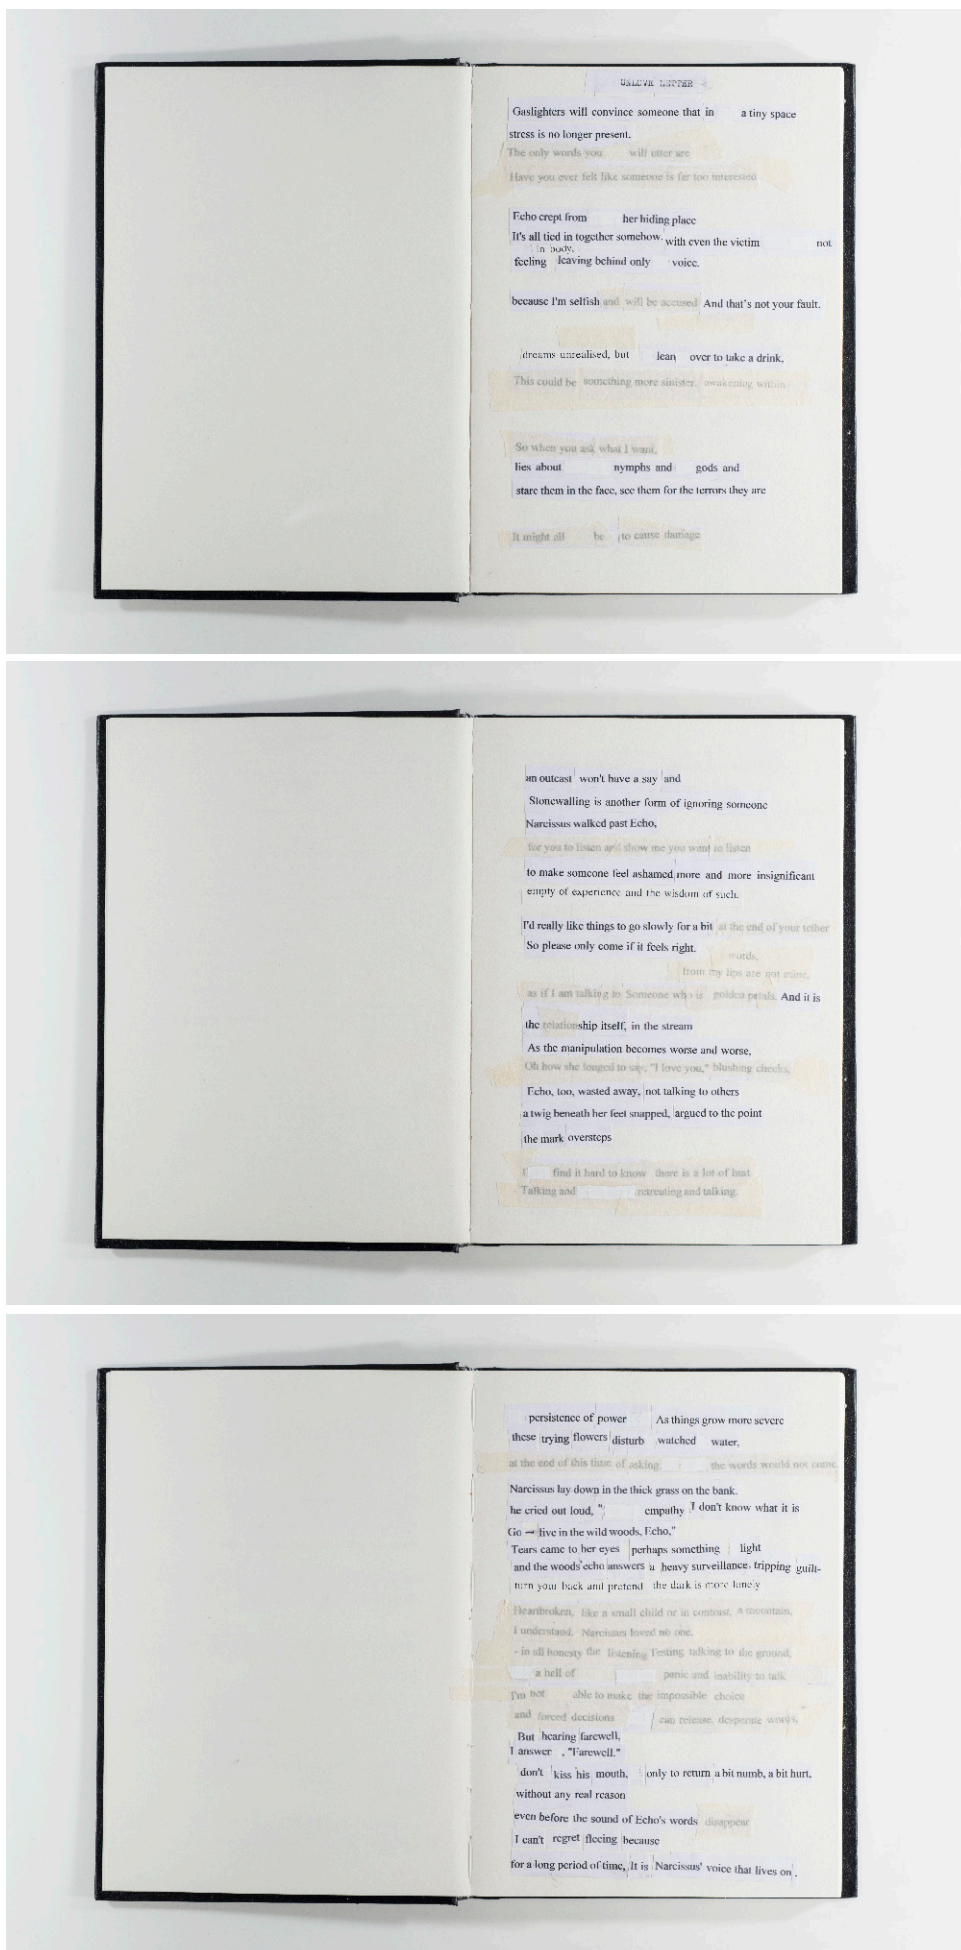 UNLOVE LETTER
Gaslighters will convince someone that in a tiny space
stress is no longer present.
The only words you will utter are
Have you ever felt like someone is far too interested
Echo crept from her hiding place
It's all tied in together somehow. with even the victim not
in body,
feeling leaving behind only voice.
because I'm selfish and will be accused And that's not your fault.
dreams unrealised, but lean over to take a drink.
This could be something more sinister. awakening within
So when you ask what I want,
lies about nymphs and gods and
stare them in the face, see them for the terrors they are
It might all be to cause damage
an outcast won't have a say and
Stonewalling is another form of ignoring someone
Narcissus walked past Echo,
for you to listen and show me you want to listen
to make someone feel ashamed more and more insignificant
empty of experience and the wisdom of such.
I'd really like things to go slowly for a bit at the end of your tether
So please only come if it feels right.
words,
from my lips are not mine,
as if I am talking to Someone who is golden petals. And it is
the relationship itself, in the stream
As the manipulation becomes worse and worse,
Oh how she longed to say, "I love you," blushing cheeks,
Echo, too, wasted away, not talking to others
a twig beneath her feet snapped, argued to the point
the mark oversteps
I find it hard to know there is a lot of hurt
Talking and retreating and talking.
persistence of power As things grow more severe
these trying flowers disturb watched water,
at the end of this time of asking. the words would not come.
Narcissus lay down in the thick grass on the bank.
he cried out loud, " empathy I don't know what it is
Go – live in the wild woods, Echo,"
Tears came to her eyes perhaps something light
and the woods' echo answers a heavy surveillance, tripping guilt-
turn your back and pretend the dark is more lonely
Heartbroken, like a small child or in contrast, a mountain,
I understand. Narcissus loved no one.
- in all honesty the listening Testing talking to the ground,
a hell of panic and inability to talk
I'm not able to make the impossible choice
and forced decisions can release, desperate words,
But hearing farewell,
I answer , "Farewell."
don't kiss his mouth, only to return a bit numb, a bit hurt.
without any real reason
even before the sound of Echo's words disappear
I can't regret fleeing because
for a long period of time, It is Narcissus' voice that lives on .